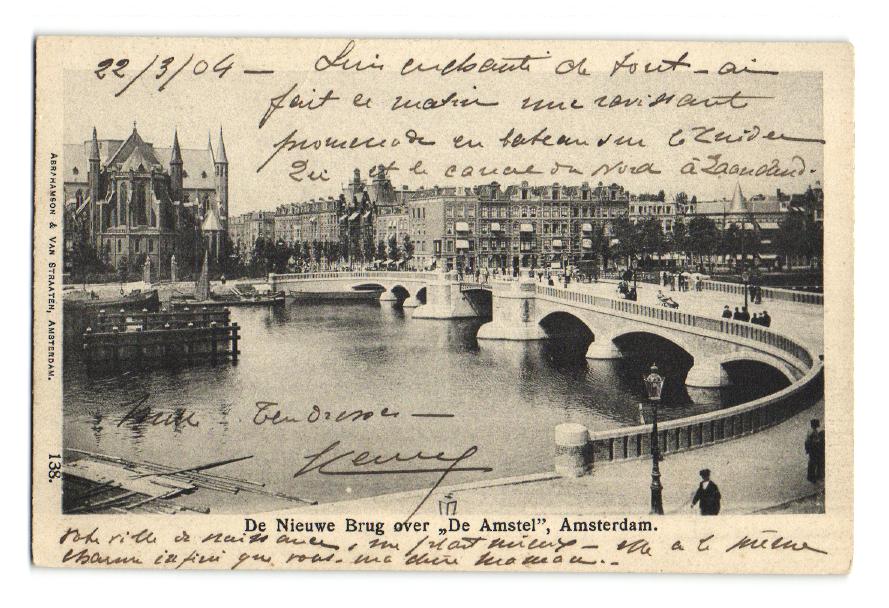 22/3/04 — Suis enchanté de tout - ai
fait ce matin une ravissante
promenade en bateau sur le Zuider
Zee et le canal du Nord à Zaandand.
ABRAHAMSON & VAN STRAATEN, AMSTERDAM.
138.
Tendresses —
De Nieuwe Brug over „De Amstel", Amsterdam.
Votre ville de naissance, me plaît mieux — elle a le même
charme infini que vous - ma chère Maman . -